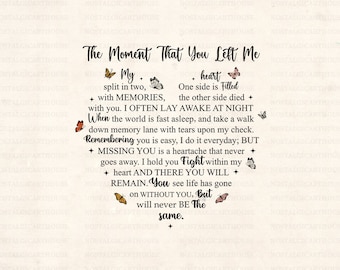 The Moment That You Left Me
My heart
split in two, One side is Filled
with MEMORIES, the other side died
with you. I OFTEN LAY AWAKE AT NIGHT
When the world is fast asleep, and take a walk
down memory lane with tears upon my check.
Remembering you is easy, I do it everyday; BUT
MISSING YOU is a heartache that never
goes away. I hold you Fight within my
heart AND THERE YOU WILL
REMAIN. You see life has gone
on WITHOUT YOU, But
will never BE The
same.